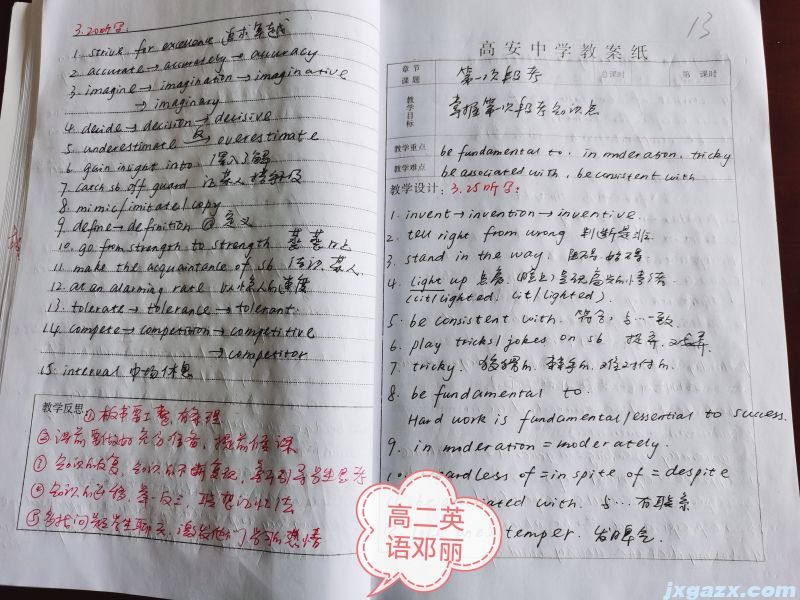 3.20听写:
1. strive for excellence 追求卓越
2. accurate → accurately → accuracy
3. imagine → imagination → imaginative
→ imaginary
4. decide → decision → decisive
5. underestimate 反 → overestimate
6. gain insight into 深入了解
7. catch sb off guard 让某人措手不及
8. mimic/imitate/copy
9. define → definition 定义
10. go from strength to strength 蒸蒸日上
11. make the acquaintance of sb 结识某人
12. at an alarming rate 以惊人的速度
13. tolerate → tolerance → tolerant
14. compete → competition → competitive
→ competitor
15. interval 中场休息
教学反思
① 板书要工整,有条理
② 课前要做好充分准备,提前备课
联想记忆法
13
高安中学教案纸
章节课题
第一次段考
总课时
第 课时
教学目标
掌握第一次段考知识点
教学重点
教学难点
be fundamental to. in moderation. tricky
be associated with. be consistent with
教学设计: 3.25听写:
1. invent → invention → inventive
2. tell right from wrong 判断是非
3. stand in the way. 阻碍.妨碍
4. light up 点亮.
(lit/lighted. lit/lighted).
5. be consistent with. 符合; 与…一致
6. play tricks/jokes on sb
7. tricky.
8. be fundamental to.
Hard work is fundamental/essential to success.
9. in moderation = moderately.
of = in spite of = despite
with. 与…有联系
temper. 发脾气
高二英
语邓丽
jxgazx.com